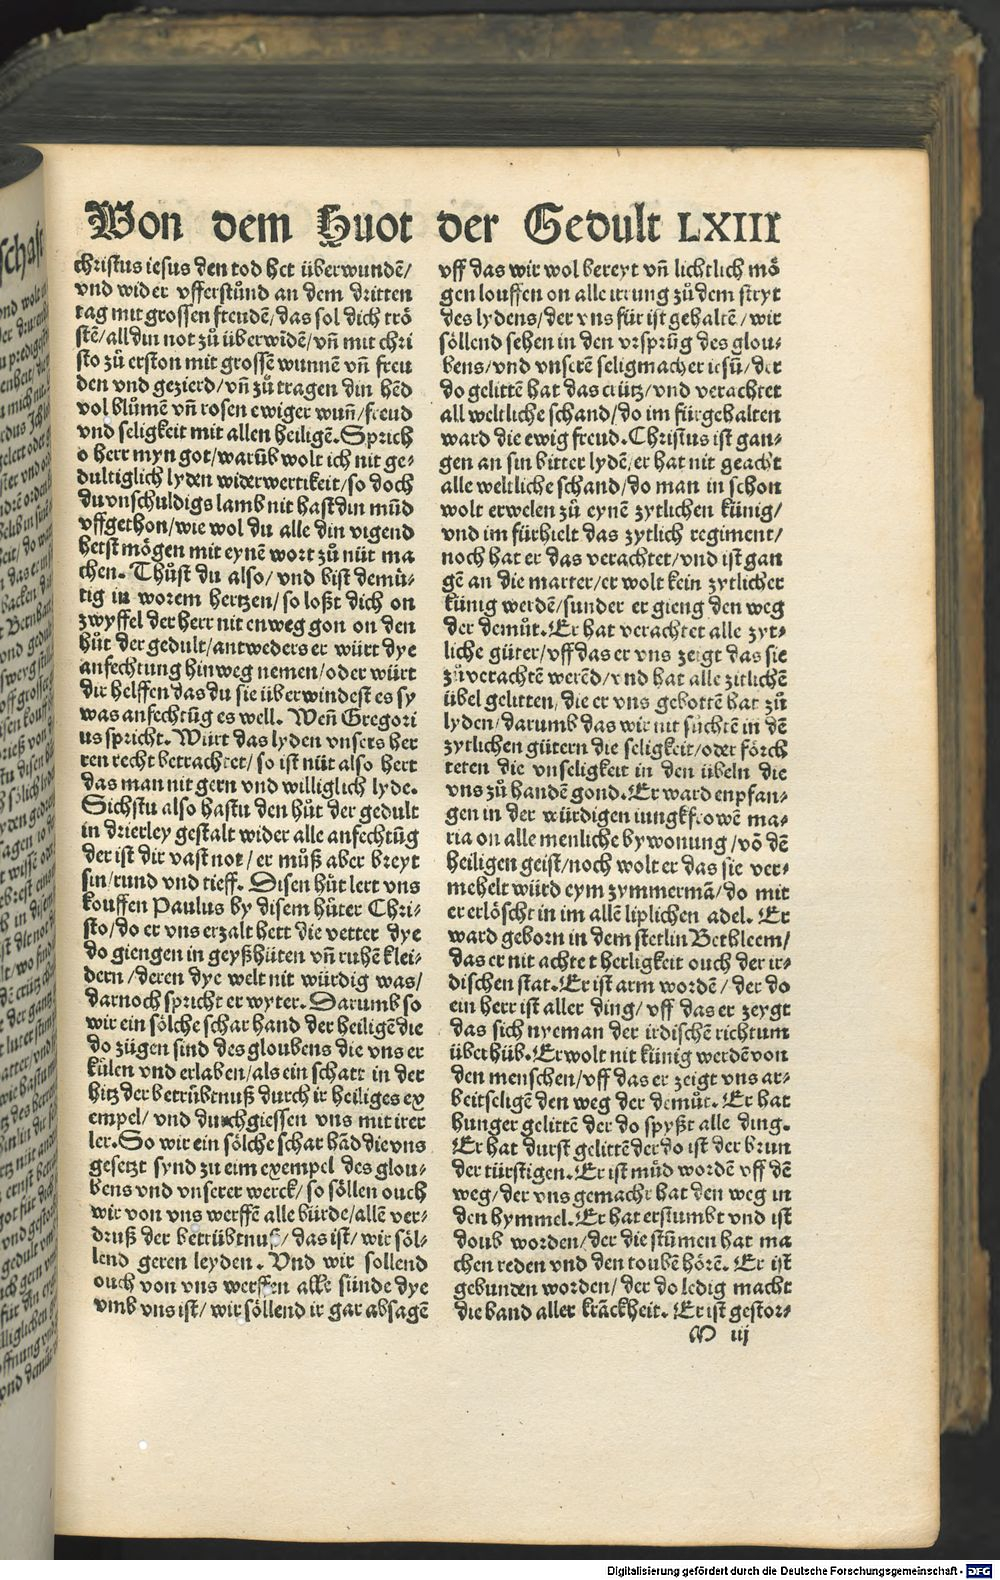 Von dem Huot der Gedult LXIII
christus iesus den tod het überwundẽ/
vnd wider vfferstůnd an dem dritten
tag mit grossen freudẽ/das sol dich trö
stẽ/all din not zů überwidẽ/vñ mit chri
sto zů erston mit grossẽ wunnẽ vñ freu
den vnd gezierd/vñ zů tragen din hẽd
vol blůmẽ vñ rosen ewiger wuñ/freud
vnd seligkeit mit allen heiligẽ. Sprich
o herr myn got/warũb wolt ich nit ge⸗
dultiglich lyden widerwertikeit/so doch
du vnschuldigs lamb nit hast din mũd
vffgethon/wie wol du alle din vigend
hetst mögen mit eynẽ wort zů nüt ma
chen. Thůst du also/vnd bist demü⸗
tig in worem hertzen/so loßt dich on
zwyffel der herr nit enweg gon on den
hůt der gedult/antweders er würt dye
anfechtung hinweg nemen/oder würt
dir helffen das du sie überwindest es sy
was anfechtũg es well. Weñ Gregori
us spricht. Würt das lyden vnsers her
ren recht betrachtet/so ist nüt also hert
das man nit gern vnd williglich lyde.
Sichstu also hastu den hůt der gedult
in drierley gestalt wider alle anfechtũg
der ist dir vast not/er můß aber breyt
sin/rund vnd tieff. Disen hůt lert vns
kouffen Paulus by disem hůter Chri⸗
sto/do er vns erzalt hett die vetter dye
do giengen in geyßhüten vñ ruhẽ klei⸗
dern/deren dye welt nit würdig was/
darnoch spricht er wyter. Darumb so
wir ein sölche schar hand der heiligẽ die
do zügen sind des gloubens die vns er
külen vnd erlaben/als ein schatt in der
hitz der betrübtnuß durch ir heiliges ex
empel/vnd durchgiessen vns mit irer
ler. So wir ein sölche schar hãd die vns
gesetzt synd zu eim exempel des glou⸗
bens vnd vnserer werck/so söllen ouch
wir von vns werffẽ alle bürde/allẽ ver⸗
druß der betrübtnuß/das ist/wir söl⸗
lend geren leyden. Vnd wir sollend
ouch von vns werffen alle sünde dye
vmb vns ist/wir söllend ir gar absagẽ
vff das wir wol bereyt vñ lichtlich mö
gen louffen on alle irrung zů dem stryt
des lydens/der vns für ist gehaltẽ/wir
söllend sehen in den vrsprũg des glou⸗
bens/vnd vnserẽ seligmacher iesũ/der
do gelittẽ hat das crütz/vnd verachtet
all weltliche schand/do im fürgehalten
ward die ewig freud. Christus ist gan⸗
gen an sin bitter lydẽ/er hat nit geacht
alle weltliche schand/do man in schon
wolt erwelen zů eynẽ zytlichen künig/
vnd im fürhielt das zytlich regiment/
noch hat er das verachtet/vnd ist gan
gẽ an die marter/er wolt kein zytlicher
künig werdẽ/sunder er gieng den weg
der demůt. Er hat verachtet alle zyt⸗
liche güter/vff das er vns zeigt das sie
zů verachtẽ werẽd/vnd hat alle zitlichẽ
übel gelitten, die er vns gebottẽ hat zů
lyden/darumb das wir nit sůchtẽ in dẽ
zytlichen gütern die seligkeit/oder förch
teten die vnseligkeit in den übeln die
vns zů handẽ gond. Er ward enpfan⸗
gen in der würdigen iungkfrowẽ ma⸗
ria on alle menliche bywonung/võ dẽ
heiligen geist/noch wolt er das sie ver⸗
mehelt würd eym zymmermã/do mit
er erlöscht in im allẽ liplichen adel. Er
ward geborn in dem stetlin Bethleem/
das er nit achtet herligkeit ouch der ir⸗
dischen stat. Er ist arm wordẽ/der do
ein herr ist aller ding/vff das er zeygt
das sich nyeman der irdischẽ richtum
überhüb. Er wolt nit künig werdẽ von
den menschen/vff das er zeigt vns ar⸗
beitseligẽ den weg der demůt. Er hat
hunger gelittẽ der do spyßt alle ding.
Er hat durst gelittẽ der do ist der brun
der türstigen. Er ist můd wordẽ vff dẽ
weg/der vns gemacht hat den weg in
den hymmel. Er hat erstumbt vnd ist
doub worden/der die stũmen hat ma
chen reden vnd den toubẽ hörẽ. Er ist
gebunden worden/der do ledig macht
die band aller krãckheit. Er ist gestor⸗
M iij
Digitalisierung gefördert durch die Deutsche Forschungsgemeinschaft - DFG